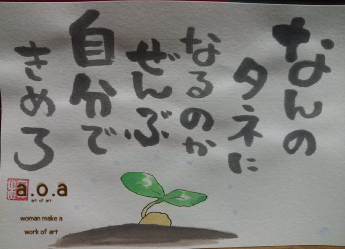 なんの
タネに
なるのか
ぜんぶ
自分で
きめろ
a.o.a
art of art
woman make a
work of art